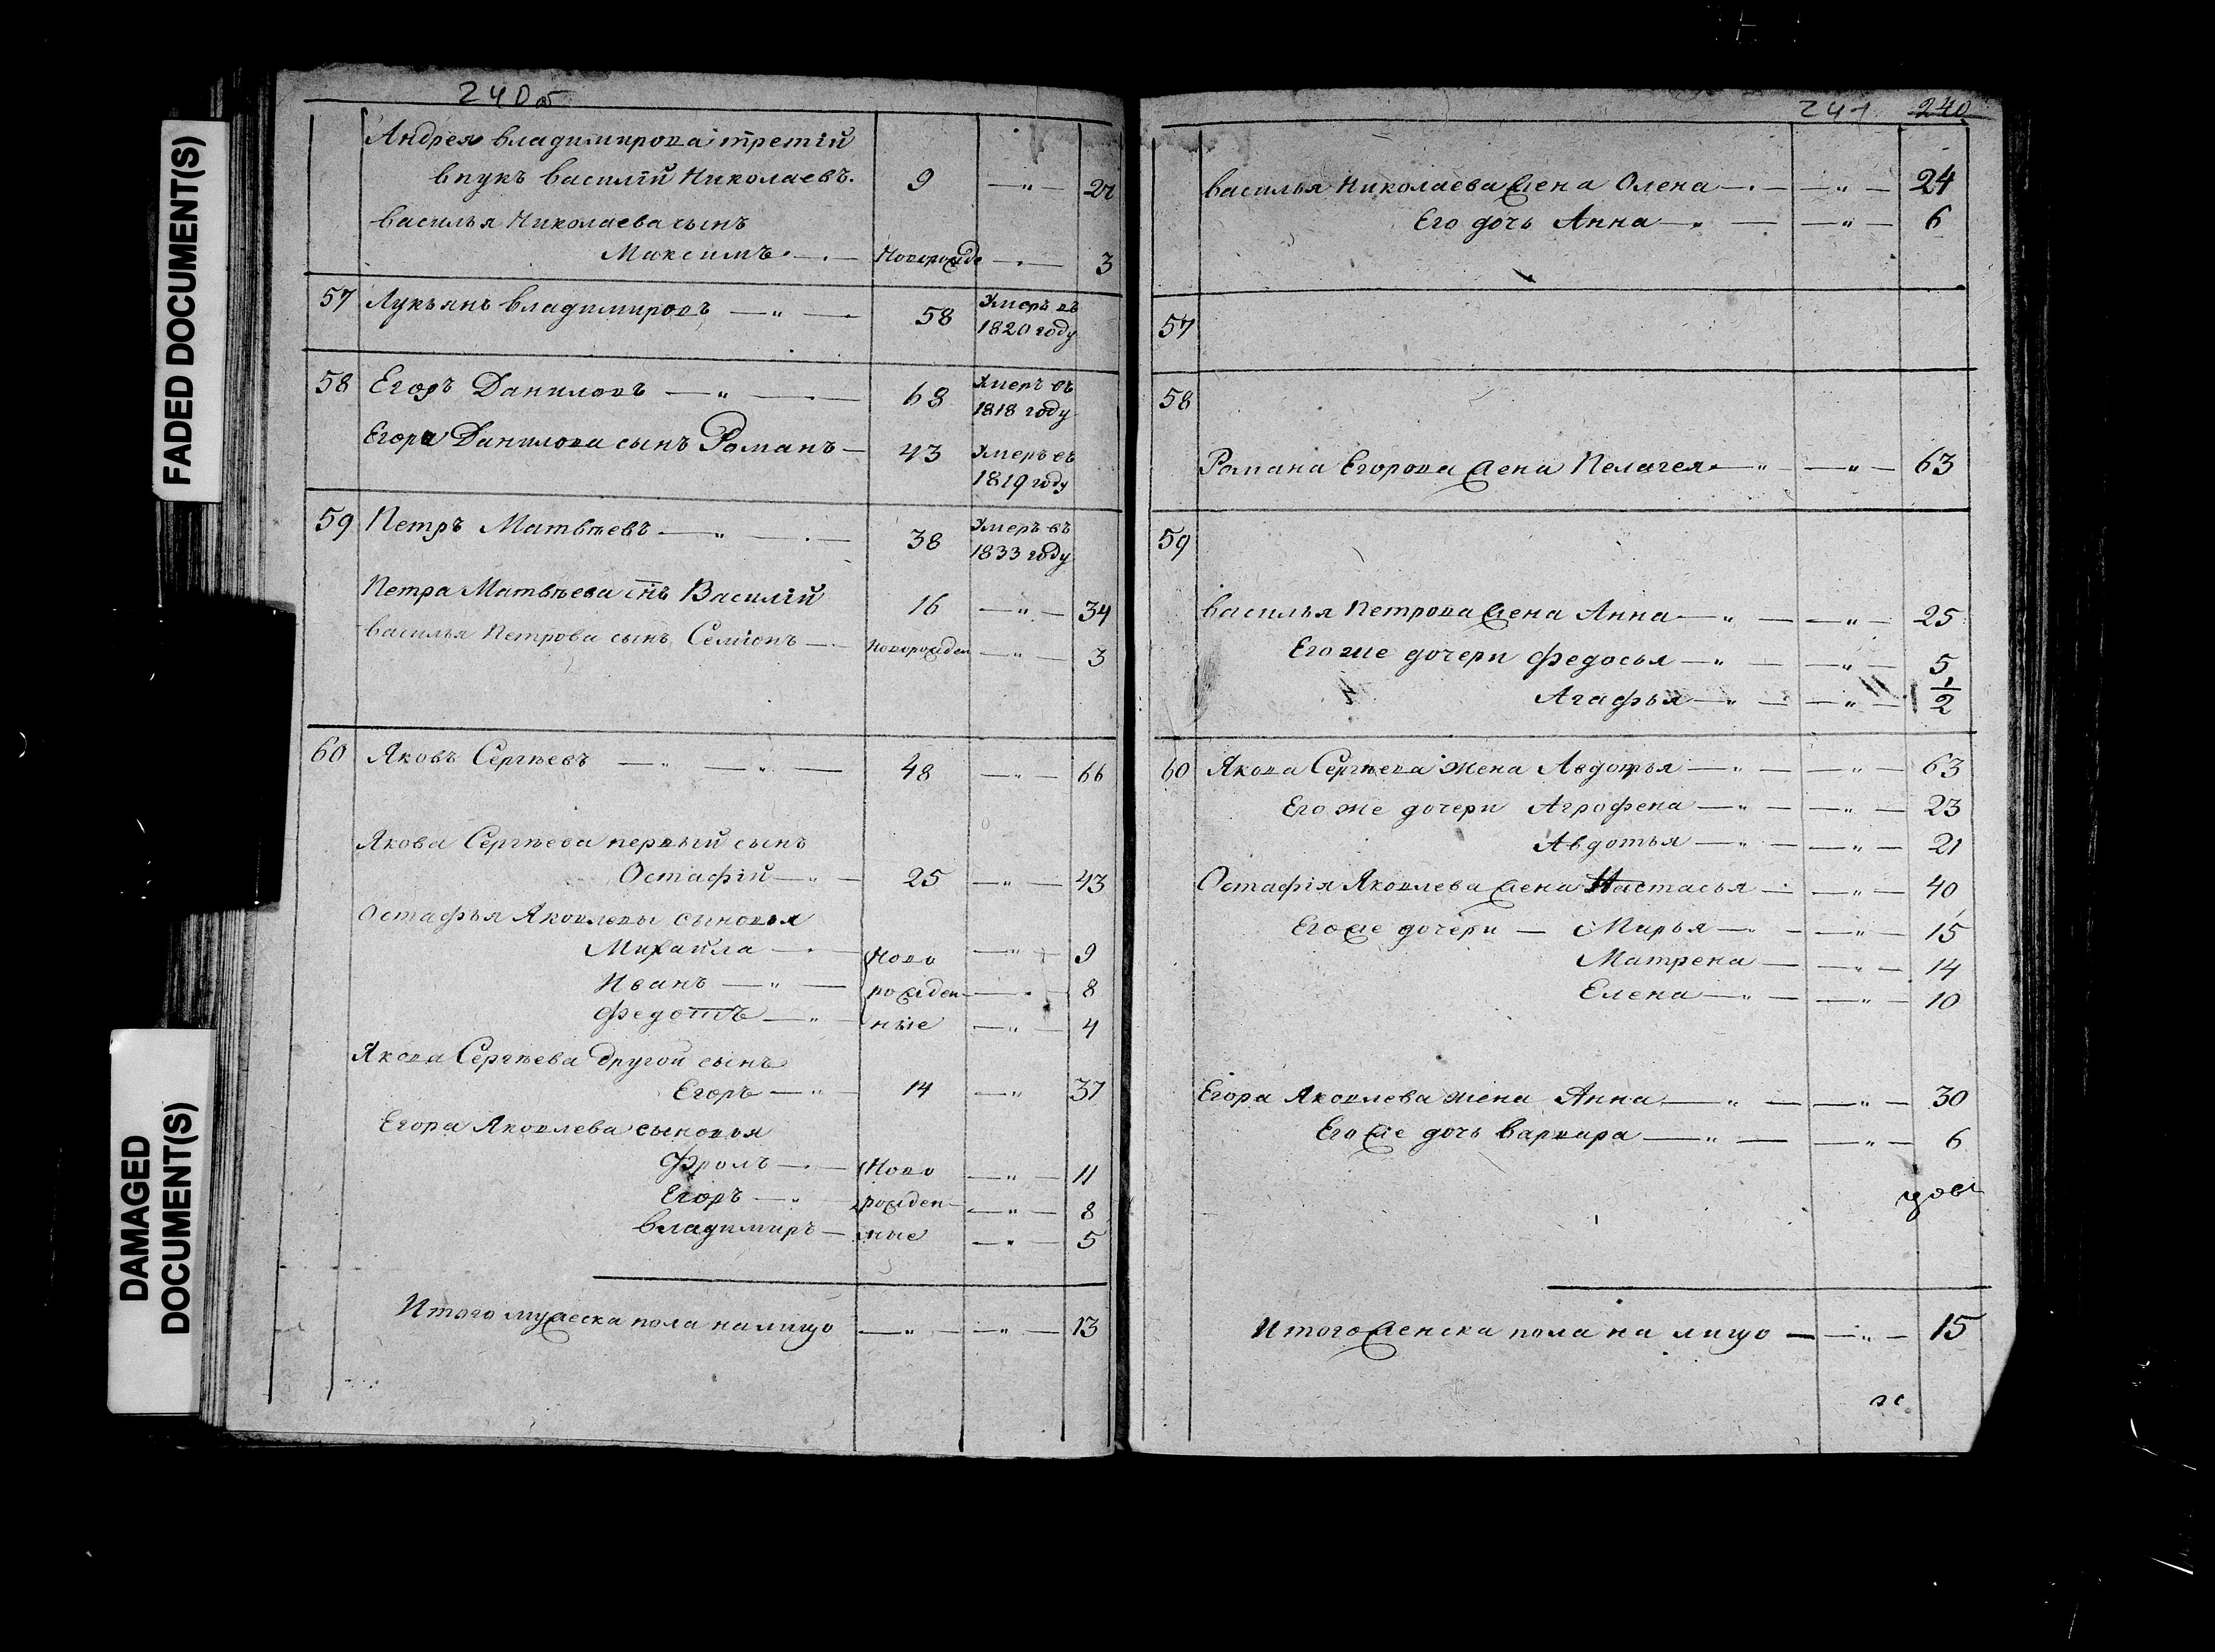 FADED DOCUMENT(S)
DAMAGED
DOCUMENT(S)
240об
Андрея Владимирова третій
внукъ Василій Николаевъ. 9 — „ — 27
Василья Николаева сынъ
Максимъ — Новорожде — 3
57 Лукьянъ Владимировъ — „ — 58 Умеръ въ
1820 году
58 Егоръ Даниловъ — „ — 68 Умеръ въ
1818 году
Егора Данилова сынъ Романъ — 43 Умеръ въ
1819 году
59 Петръ Матвѣевъ — „ — 38 Умеръ въ
1833 году
Петра Матвѣева снъ Василій 16 — „ — 34
Василья Петрова сынъ Семіонъ — Новорожден — „ — 3
60 Яковъ Сергѣевъ — „ — „ — 48 — „ — 66
Якова Сергѣева первый сынъ
Остафій — „ — 25 — „ — 43
Остафья Яковлевы сыновья
Михайла — Ново — „ — 9
Иванъ — „ — рожден — „ — 8
Федотъ — „ — ные — „ — 4
Якова Сергѣева другой сынъ
Егоръ — „ — 14 — „ 37
Егора Яковлева сыновья
Фролъ — Ново — „ — 11
Егоръ — „ рожден — „ — 8
Владимиръ — ные — „ — 5
Итого мужеска пола налицо — „ — „ — 13
241 240
Василья Николаева жена Олена — „ — 24
Его дочь Анна — „ — 6
57
58
Романа Егорова жена Пелагея — „ — „ — 63
59
Василья Петрова жена Анна — „ — „ — 25
Его же дочери Федосья — „ — „ — 5
Агафья — „ — „ — 1/2
60 Якова Сергѣева жена Авдотья — „ — „ — 63
Его же дочери Агрофена — „ — „ — 23
Авдотья — „ — „ — 21
Остафія Яковлева жена Настасья — „ — 40
Его же дочери — Марья — „ — „ — 15
Матрена — „ — 14
Елена — „ — „ — 10
Егора Яковлева жена Анна — „ — „ — 30
Его же дочь Варвара — „ — „ — 6
Итого женска пола на лицо — „ — 15